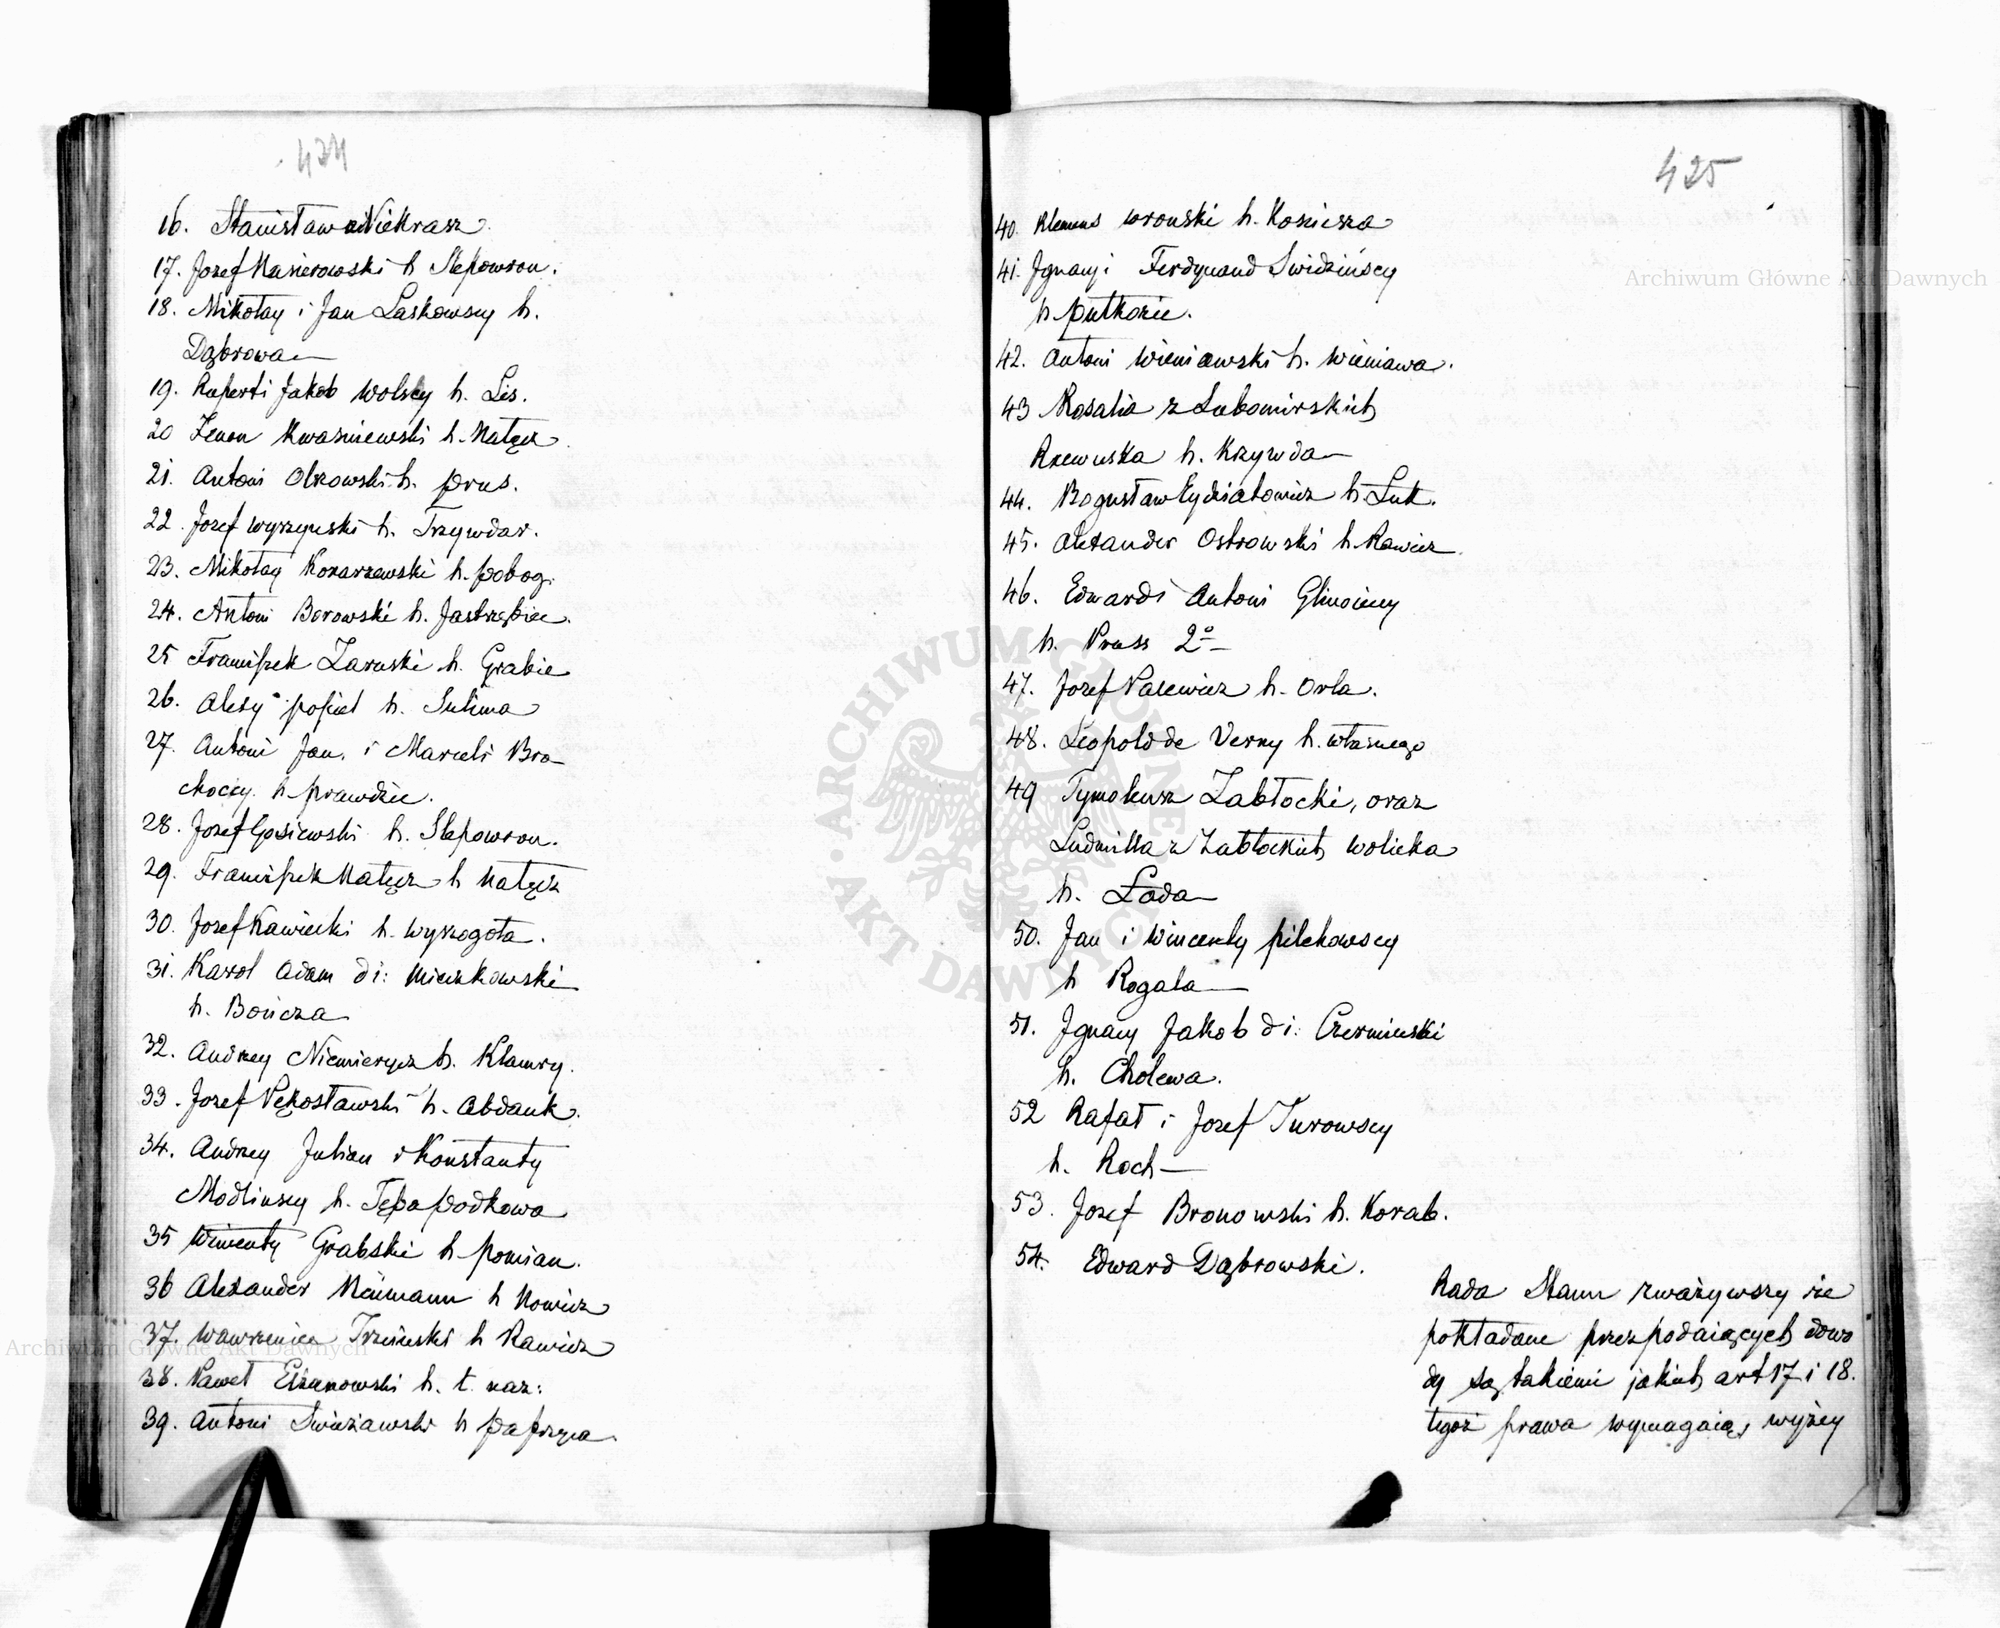 424
16. Stanisław Niekrasz.
17. Jozef Maxierowski h Slepowron.
18. Mikołay i Jan Laskowscy h.
Dąbrowa
19. Ruperti Jakob Wolscy h. Lis.
20 Zenon Kwasniewski h. Nałęcz.
21. Antoni Olszowski h. Prus.
22. Jozef Wyrzynski h. Trzywdar.
23. Mikołay Kozarzewski h. Pobog.
24. Antoni Borowski h. Jastrzębiec.
25 Franciszek Zaruski h. Grabie
26. Alexy Popiel h. Sulima
27. Antoni Jan. i Marceli Bro-
choccy. h. Prawdzic.
28. Jozef Gosiewski h. Slepowron.
29. Franciszek Nałęcz h Nałęcz
30. Jozef Kawiecki h. Wyszogota.
31. Karol Adam di: Mieczkowski
h. Bończa
32. Andrzey Niemierycz h. Klamry.
33. Jozef Pękosławski h. Abdank.
34. Andrzey Julian i Konstanty
Modlinscy h. Tępa Podkowa
35 Wincenty Grabski h Pomian.
36 Alexander Neumann h Nowicz
37. Wawrzeniec Trzcinski h Rawicz
38. Paweł Elzanowski h. t. naz:
39. Antoni Swiezawski h Paprzyca.
425
40. Klemens Wronski h. Kosciesza
41. Ignacy i Ferdynand Swidzińscy
h Pułkozic.
42. Antoni Wieniawski h. Wieniawa.
43 Rosalia z Lubomirskich
Rzewuska h. Krzywda
44. Bogusław Eydziatowicz h. Luk.
45. Alexander Ostrowski h. Rawicz
46. Edward i Antoni Glinoieccy
h. Pruss 2o
47. Jozef Pacewicz h. Orla.
48. Leopold de Verny h. własnego
49 Tymoteusz Zabłocki, oraz
Ludmilla z Zabłockich Wolicka
h. Łada
50. Jan i Wincenty Pilchowscy
h Rogala
51. Ignacy Jakob di: Czerminski
h. Cholewa.
52 Rafał i Jozef Turowscy
h. Roch
53. Jozef Bronowski h. Korab.
54. Edward Dąbrowski.
Rada Stanu zważywszy że
pokładane przez podaiących dowo
dy są takiemi jakich art 17 i 18.
tegoż prawa wymagaią, wyżey
Archiwum Główne Akt Dawnych
Archiwum Główne Akt Dawnych
ARCHIWUM GŁÓWNE AKT DAWNYCH